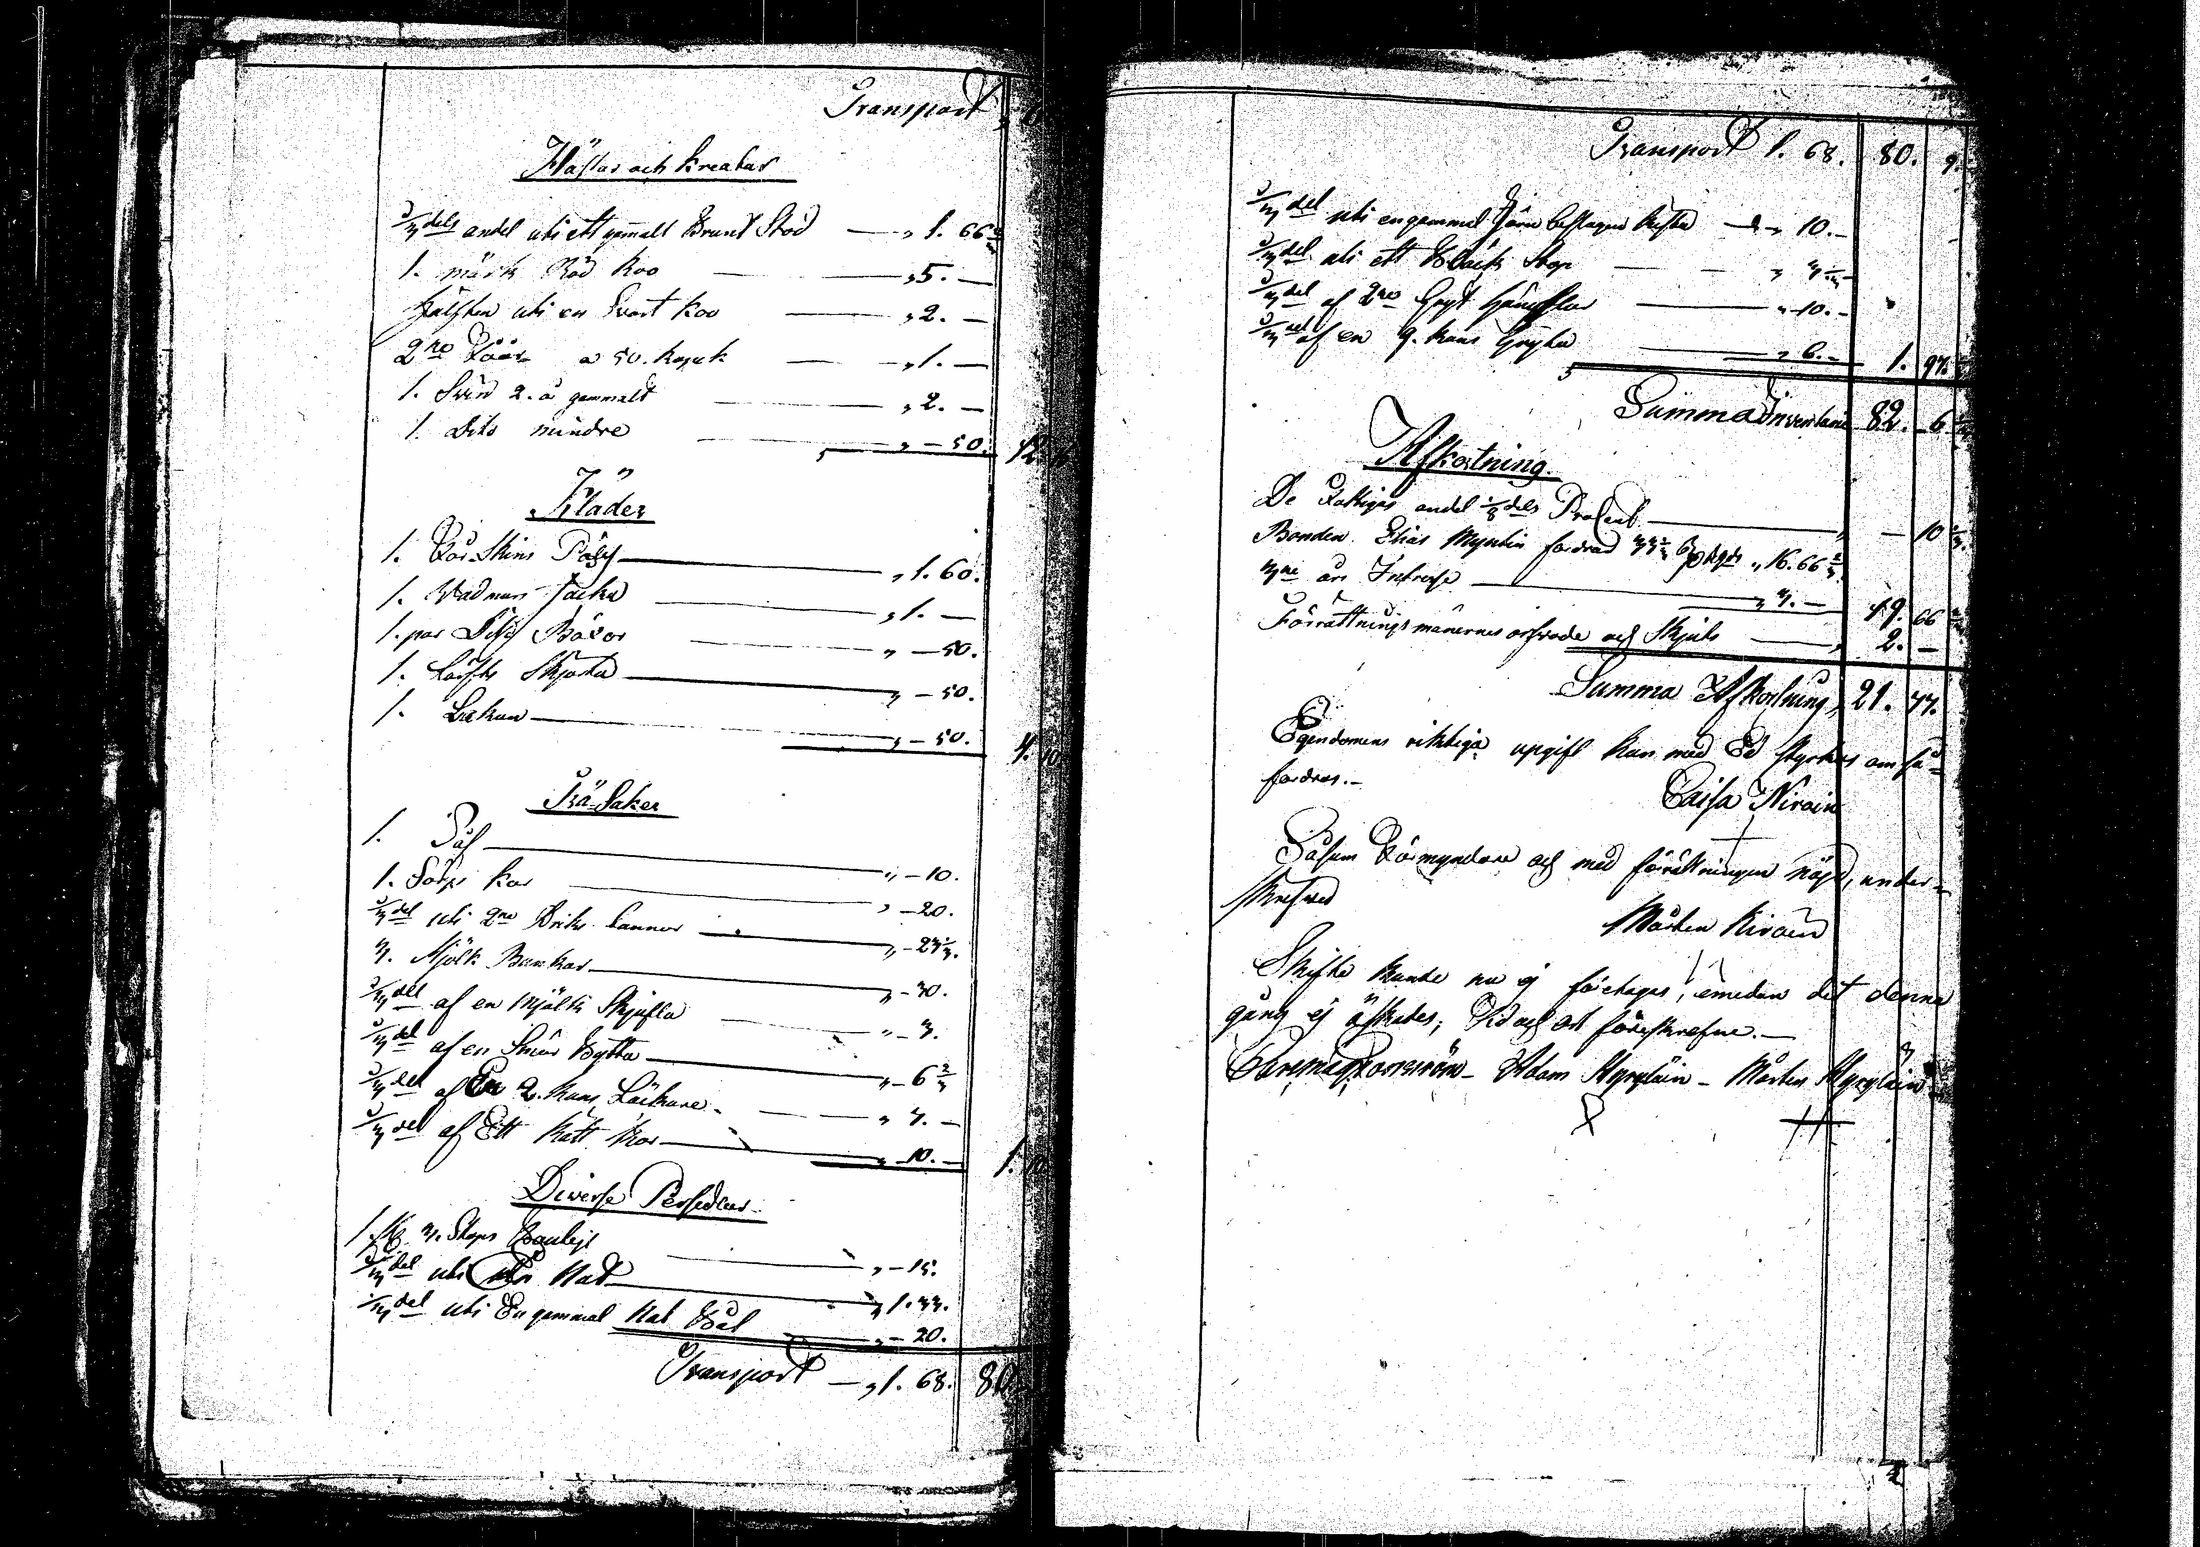 Transport
Hästar och Kreatur
1/3dels andel uti ett gamalt Brunt Stod — „ 1. 66 2/3
1. mörk Röd Koo — „ 5. —
Hälften uti en Svart Koo — „ 2. —
2ne Fåår a 50. Kopek — „ 1. —
1. Svin 2. å gammalt — „ 2. —
1. Dito mindre — „ — 50. 12.
Kläder
1. Får Skins Päls — „ 1. 60.
1. Wadmars Jacka — „ 1. —
1. par Dito Böxor — „ — 50.
1. Lärfts Skjorta — „ — 50.
1. Lakan — „ — 50. 4. 10
Trä Saker
1. Så — „ — 10.
1. Sörps Kar — „ — 20.
1/3del uti 2ne Driks Cannor — „ — 23 1/3.
3. Mjölk Bunkar — „ — 30.
1/3del af en Mjölk Skjufla — „ — 3.
1/3del af en Smör Bytta — „ — 6 2/3
1/3del af En 2. Kans Läckare — „ 3. —
1/3del af Ett Kar — „ 10. — 1.
Diverse Persedlar
1. 3. Stops — „ — 15.
1/3del uti Not — „ 1. 33.
1/3del uti En gammal Not Båt — „ — 20.
Transport — „ 1. 68. 80.
Transport 1. 68. 80. 9.
1/3del uti en gammal Järn beslagen Kista — „ 10. —
1/3del uti ett Bläck Stop — „ 3 1/3
1/3del af 2ne Gryt — „ 10. —
1/3del af en 9. Kans Gryta — „ 6. — 1. 97.
Summa Inventarii 82. 6
Afkortning.
De Fattigas andel 1/8dels Procent — 10
Bonden Elias fordrad 16. 66 2/3.
3ne års Intresse — „ 3. — 19. 66 2/3
Förrättningsmännernes arfvode och Skjuts — 2. —
Summa Afkortning, 21. 77.
Egendomens riktiga upgift kan med Ed styrkas om så
fordras. —
Caisa Nirain
Såsom Förmyndare och med förrättningen nögd, under-
skrifved
Mårten Kirain
Skifte kunde nu ej företagas, emedan det denna
gång ej äskades; Tid och Ort föreskrefne. —
Adam Hyryläin — Mårten Hyryläin